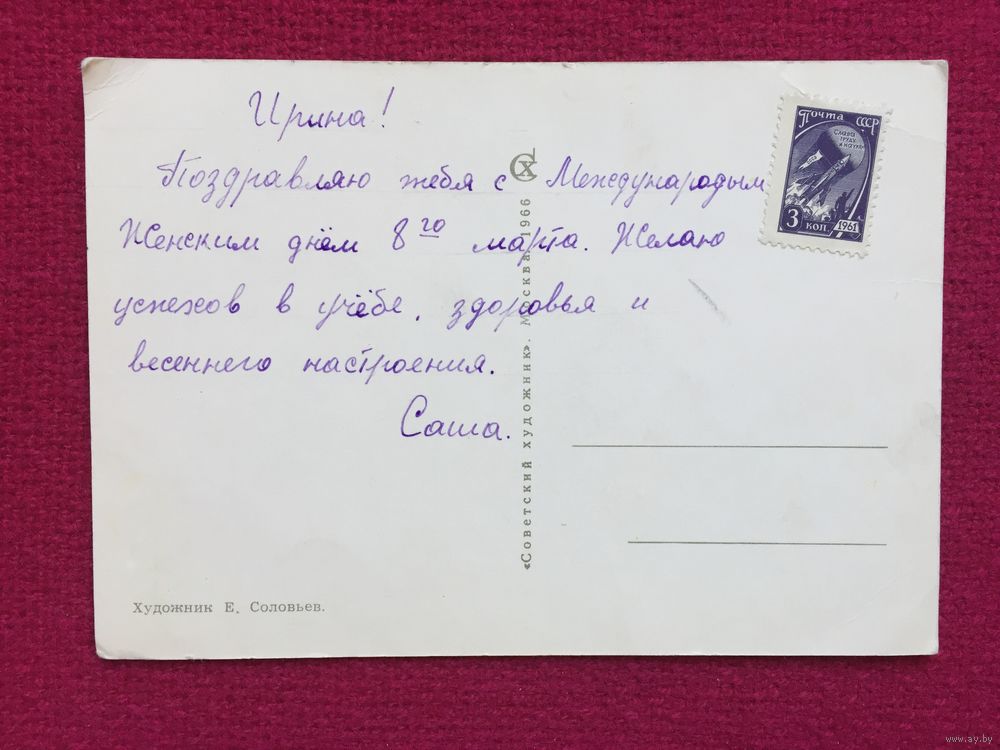 Ирина!
Поздравляю тебя с Международым
Женским днём 8го марта. Желаю
успехов в учёбе, здоровья и
весеннего настроения.
Саша.
Почта СССР
Слава
труду
и науке
3 коп. 1961
СХ
«Советский художник». Москва. 1966
Художник Е. Соловьев.
www.ay.by